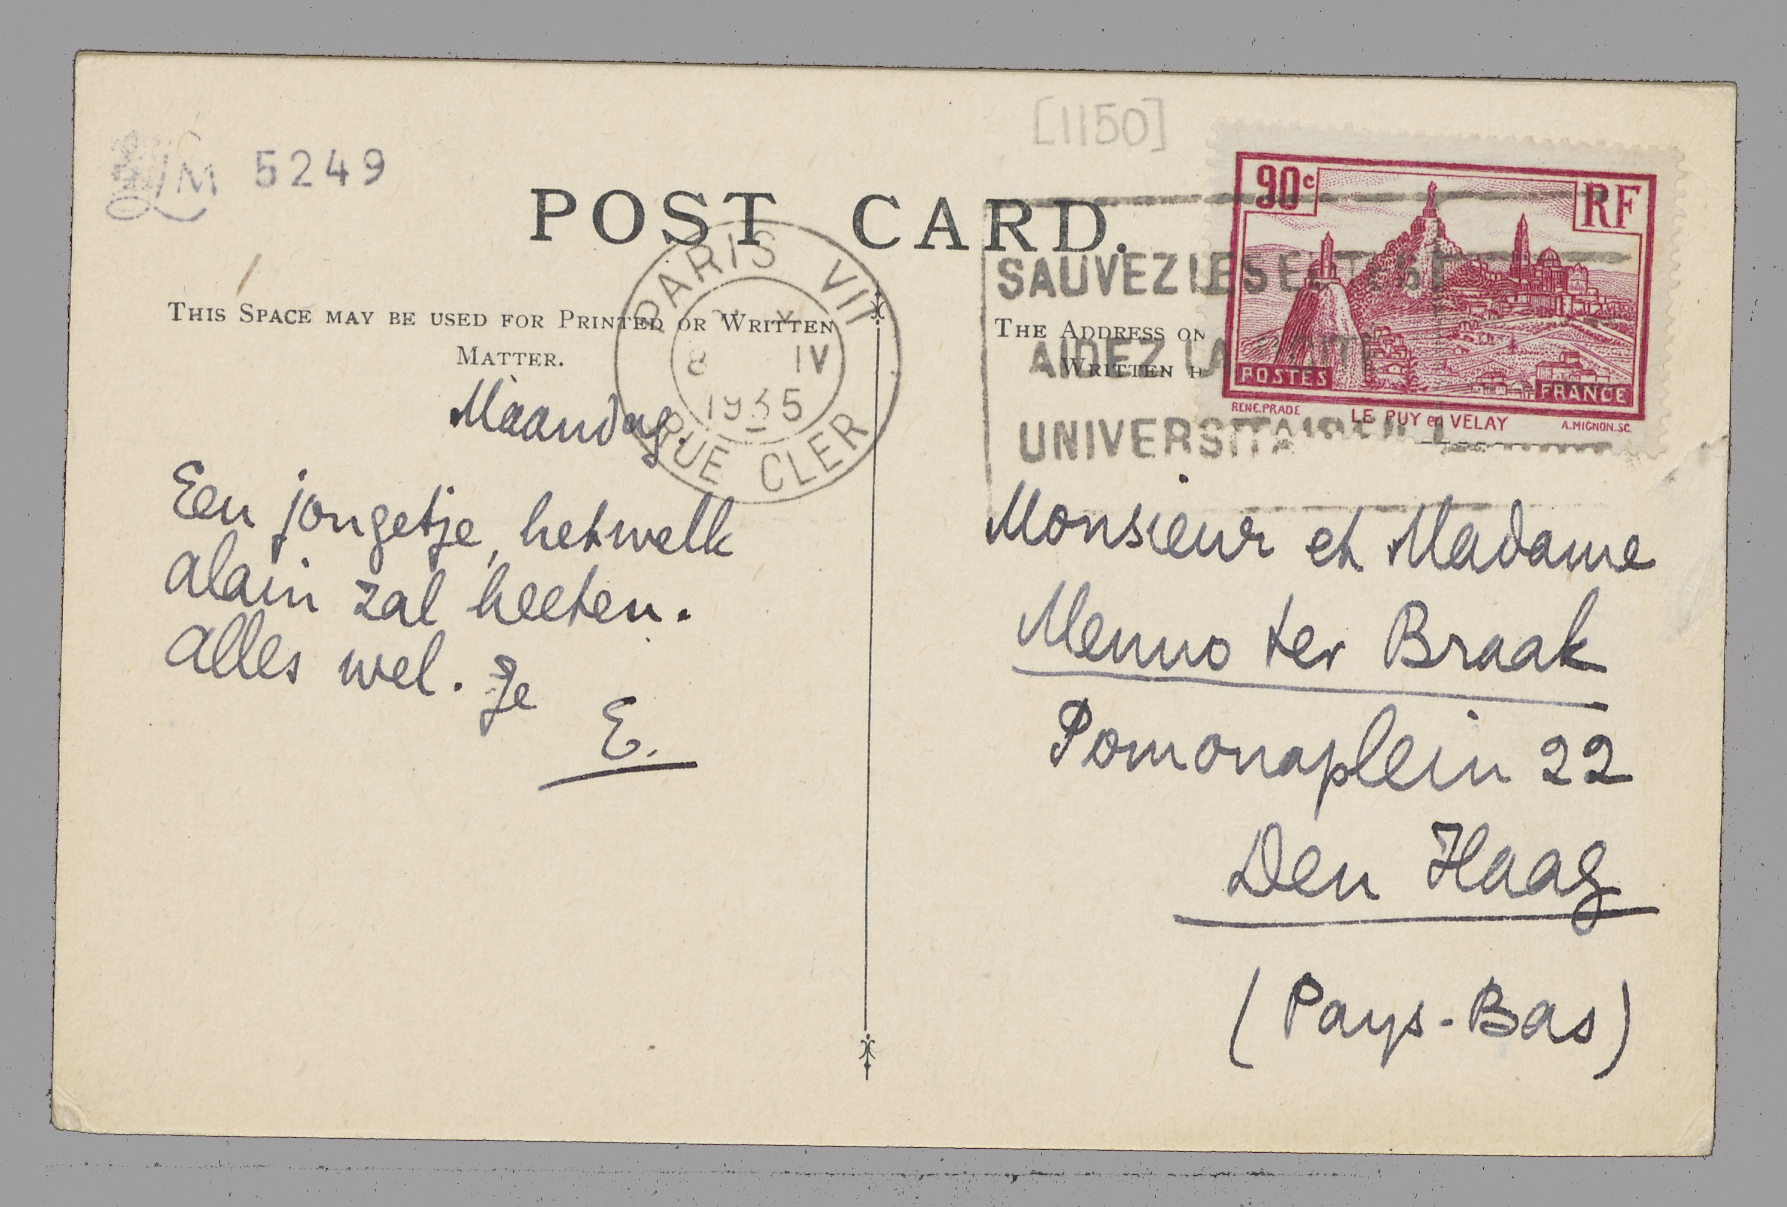 [1150]
LM 5249
POST CARD.
90c RF
PARIS VII
8 IV
1935
RUE CLER
SAUVEZ LES
AIDEZ LA
UNIVERSITAIRE
POSTES FRANCE
RENE.PRADE LE PUY en VELAY A.MIGNON.SC.
THIS SPACE MAY BE USED FOR PRINTED OR WRITTEN
MATTER.
THE ADDRESS ON
WRITTEN H
Maandag.
Een jongetje, hetwelk
Alain zal heeten.
Alles wel. Je
E.
Monsieur et Madame
Menno ter Braak
Pomonaplein 22
Den Haag
(Pays-Bas)